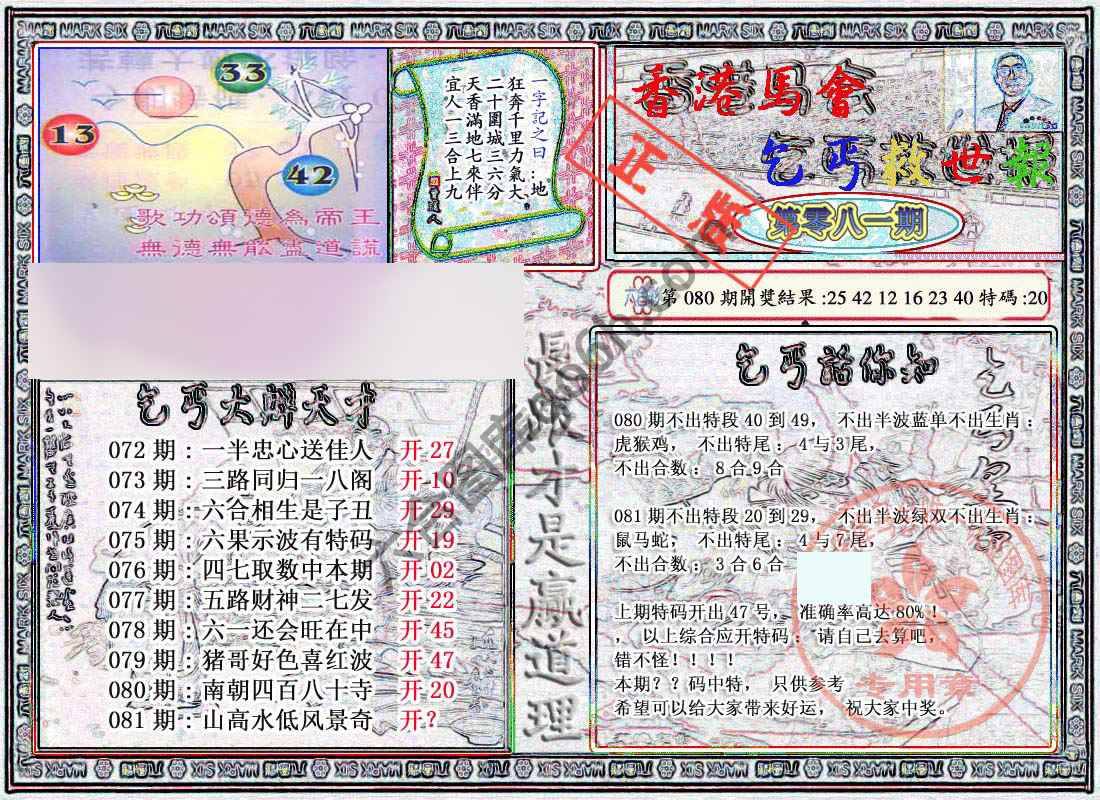 33
13
42
歌功頌德為帝王
無德無能盡道謊
一字記之曰:地
狂奔千里力氣大
二十圍城三六分
天香滿地七來伴
宜人一三合上九
香港馬會
乞丐救世報
第零八一期
第 080 期開獎結果 :25 42 12 16 23 40 特碼 :20
乞丐大辩天才
072 期：一半忠心送佳人 开 27
073 期：三路同归一八阁 开 10
074 期：六合相生是子丑 开 29
075 期：六果示波有特码 开 19
076 期：四七取数中本期 开 02
077 期：五路财神二七发 开 22
078 期：六一还会旺在中 开 45
079 期：猪哥好色喜红波 开 47
080 期：南朝四百八十寺 开 20
081 期：山高水低风景奇 开 ?
才是赢道理
乞丐話你知
080 期不出特段 40 到 49， 不出半波蓝单不出生肖：
虎猴鸡， 不出特尾：4 与 3 尾，
不出合数：8 合 9 合
081 期不出特段 20 到 29， 不出半波绿双不出生肖：
鼠马蛇， 不出特尾：4 与 7 尾，
不出合数：3 合 6 合
上期特码开出 47 号， 准确率高达 80%！
， 以上综合应开特码： 请自己去算吧，
错不怪！！！！
本期？？码中特， 只供参考
希望可以给大家带来好运， 祝大家中奖。
专用章
MARK SIX